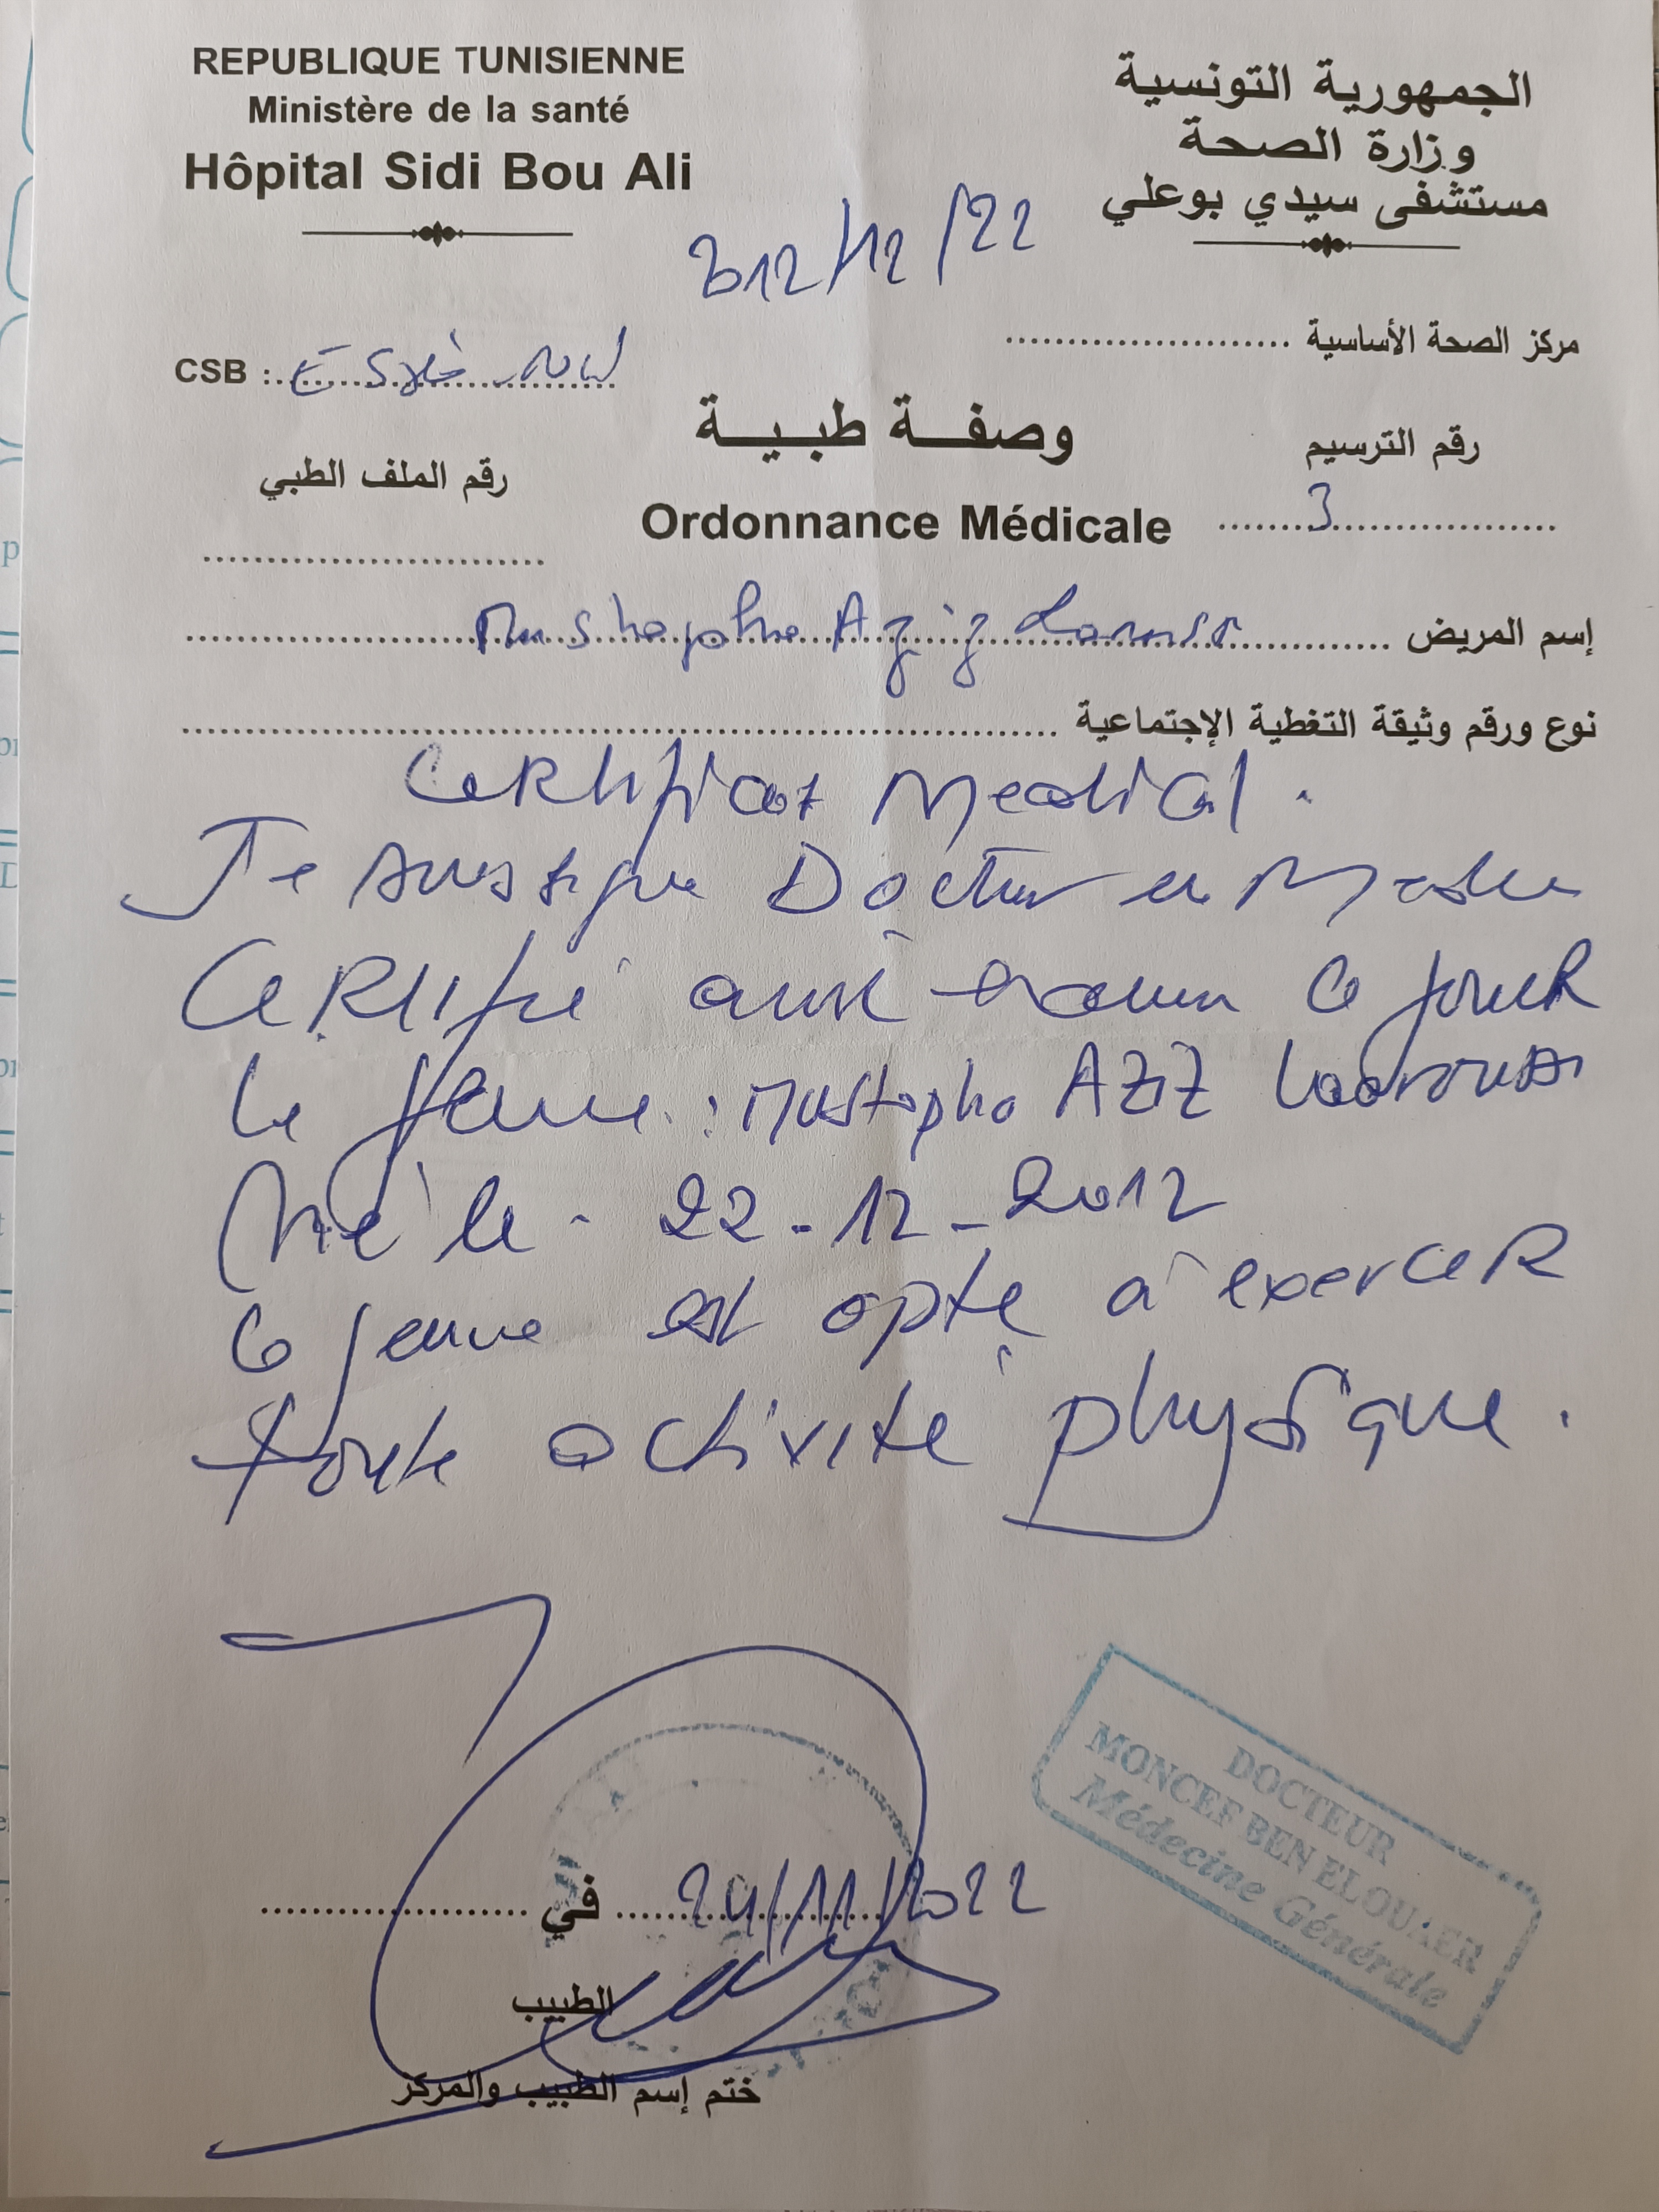 REPUBLIQUE TUNISIENNE
Ministère de la santé
Hôpital Sidi Bou Ali
الجمهورية التونسية
وزارة الصحة
مستشفى سيدي بوعلي
12/12/22
مركز الصحة الأساسية
CSB :
وصفة طبية
Ordonnance Médicale
رقم الترسيم
3
رقم الملف الطبي
إسم المريض Mustapha Aziz
نوع ورقم وثيقة التغطية الإجتماعية
Certificat Medical.
Je soussigné Docteur en
Certifie avoir examiné ce jour
le jeune : Mustapha AZIZ
Né le - 22-12-2012
Ce jeune est apte à exercer
toute activité physique.
DOCTEUR
MONCEF BEN ELOUAER
Médecine Générale
في 24/11/2022
الطبيب
ختم إسم الطبيب والمركز